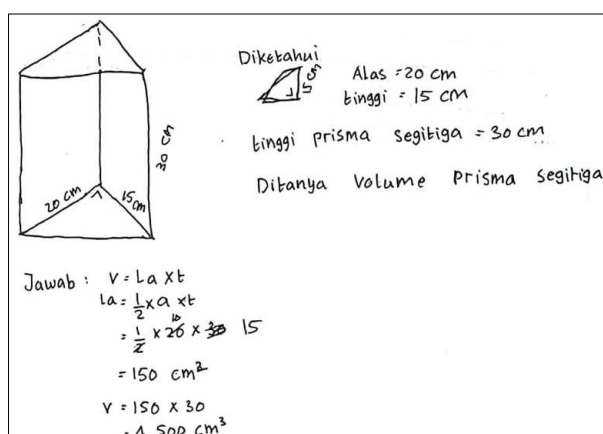 20 cm
15 cm
30 cm
Diketahui
15 cm
Alas = 20 cm
tinggi = 15 cm
tinggi prisma segitiga = 30 cm
Ditanya Volume Prisma segitiga
Jawab : V = La x t
La = 1/2 x a x t
= 1/2 x 20 10 x 30 15
= 150 cm²
V = 150 x 30
= 4.500 cm³